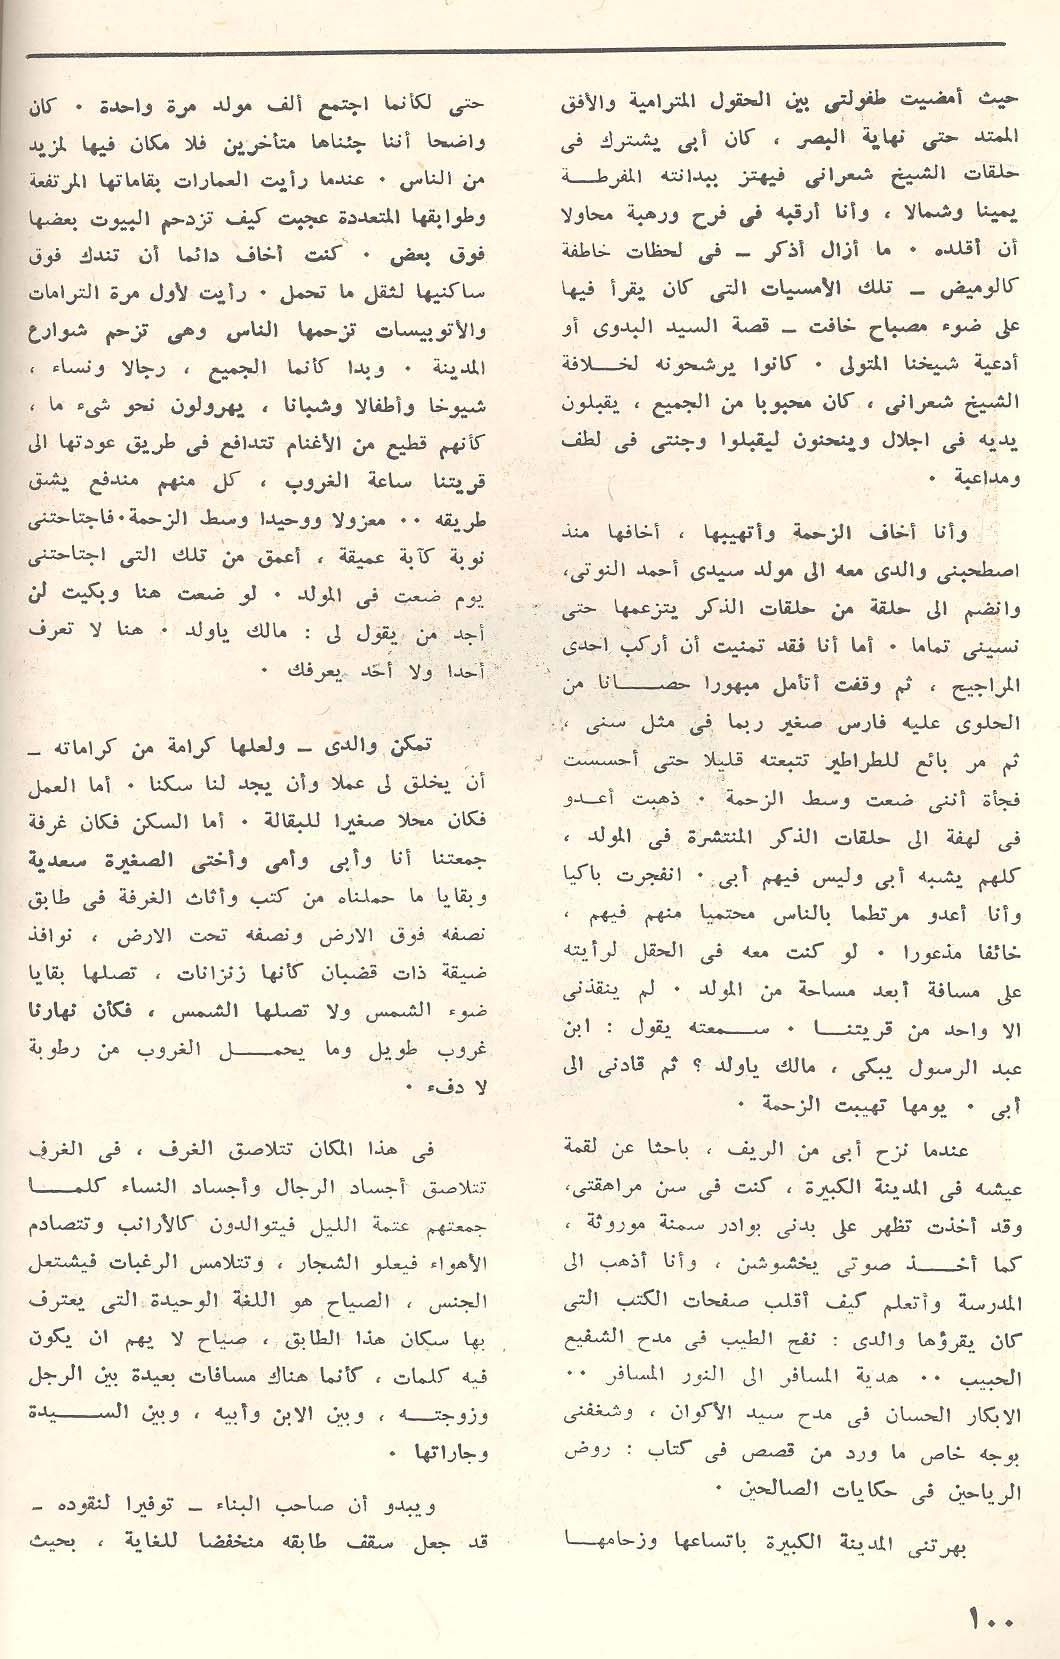 حيث أمضيت طفولتى بين الحقول المترامية والأفق
الممتد حتى نهاية البصر ، كان أبى يشترك فى
حلقات الشيخ شعرانى فيهتز ببدانته المفرطــة
يمينا وشمالا ، وأنا أرقبه فى فرح ورهبة محاولا
أن أقلده ٠ ما أزال أذكر ــ فى لحظات خاطفة
كالوميض ــ تلك الأمسيات التى كان يقرأ فيها
على ضوء مصباح خافت ــ قصة السيد البدوى أو
أدعية شيخنا المتولى ٠ كانوا يرشحونه لخــلافة
الشيخ شعرانى ، كان محبوبا من الجميع ، يقبلون
يديه فى اجلال وينحنون ليقبلوا وجنتى فى لطف
ومداعبة ٠
وأنا أخاف الزحمة وأتهيبها ، أخافها منذ
اصطحبنى والدى معه الى مولد سيدى أحمد النوتى،
وانضم الى حلقة من حلقات الذكر يتزعمها حتى
نسينى تماما ٠ أما أنا فقد تمنيت أن أركب احدى
المراجيح ، ثم وقفت أتأمل مبهورا حصــانا من
الحلوى عليه فارس صغير ربما فى مثل سنى ،
ثم مر بائع للطراطير تتبعته قليلا حتى أحسست
فجأة أننى ضعت وسط الزحمة ٠ ذهبت أعــدو
فى لهفة الى حلقات الذكر المنتشرة فى المولد ،
كلهم يشبه أبى وليس فيهم أبى ٠ انفجرت باكيا
وأنا أعدو مرتطما بالناس محتميا منهم فيهم ،
خائفا مذعورا ٠ لو كنت معه فى الحقل لرأيته
على مسافة أبعد مساحة من المولد ٠ لم ينقذنى
الا واحد من قريتنــا ٠ ســمعته يقول : ابن
عبد الرسول يبكى ، مالك ياولد ؟ ثم قادنى الى
أبى ٠ يومها تهيبت الزحمة ٠
عندما نزح أبى من الريف ، باحثا عن لقمة
عيشه فى المدينة الكبيرة ، كنت فى سن مراهقتى،
وقد أخذت تظهر على بدنى بوادر سمنة موروثة ،
كما أخــذ صوتى يخشوشن ، وأنا أذهب الى
المدرسة وأتعلم كيف أقلب صفحات الكتب التى
كان يقرؤها والدى : نفح الطيب فى مدح الشفيع
الحبيب ٠٠ هدية المسافر الى النور المسافر ٠٠
الابكار الحسان فى مدح سيد الأكوان ، وشغفنى
بوجه خاص ما ورد من قصص فى كتاب : روض
الرياحين فى حكايات الصالحين ٠
بهرتنى المدينة الكبيرة باتساعها وزحامهــا
حتى لكأنما اجتمع ألف مولد مرة واحدة ٠ كان
واضحا أننا جئناها متأخرين فلا مكان فيها لمزيد
من الناس ٠ عندما رأيت العمارات بقاماتها المرتفعة
وطوابقها المتعددة عجبت كيف تزدحم البيوت بعضها
فوق بعض ٠ كنت أخاف دائما أن تندك فوق
ساكنيها لثقل ما تحمل ٠ رأيت لأول مرة الترامات
والأتوبيسات تزحمها الناس وهى تزحم شوارع
المدينة ٠ وبدا كأنما الجميع ، رجالا ونساء ،
شيوخا وأطفالا وشبانا ، يهرولون نحو شىء ما ،
كأنهم قطيع من الأغنام تتدافع فى طريق عودتها الى
قريتنا ساعة الغروب ، كل منهم مندفع يشق
طريقه ٠٠ معزولا ووحيدا وسط الزحمة٠فاجتاحتنى
نوبة كآبة عميقة ، أعمق من تلك التى اجتاحتنى
يوم ضعت فى المولد ٠ لو ضعت هنا وبكيت لن
أجد من يقول لى : مالك ياولد ٠ هنا لا تعرف
أحدا ولا أحد يعرفك ٠
تمكن والدى ــ ولعلها كرامة من كراماته ــ
أن يخلق لى عملا وأن يجد لنا سكنا ٠ أما العمل
فكان محلا صغيرا للبقالة ٠ أما السكن فكان غرفة
جمعتنا أنا وأبى وأمى وأختى الصغيرة سعدية
وبقايا ما حملناه من كتب وأثاث الغرفة فى طابق
نصفه فوق الارض ونصفه تحت الارض ، نوافذ
ضيقة ذات قضبان كأنها زنزانات ، تصلها بقايا
ضوء الشمس ولا تصلها الشمس ، فكأن نهارنا
غروب طويل وما يحمــل الغروب من رطوبة
لا دفء ٠
فى هذا المكان تتلاصق الغرف ، فى الغرف
تتلاصق أجساد الرجال وأجساد النساء كلمــا
جمعتهم عتمة الليل فيتوالدون كالأرانب وتتصادم
الأهواء فيعلو الشجار ، وتتلامس الرغبات فيشتعل
الجنس ، الصياح هو اللغة الوحيدة التى يعترف
بها سكان هذا الطابق ، صياح لا يهم ان يكون
فيه كلمات ، كأنما هناك مسافات بعيدة بين الرجل
وزوجتــه ، وبين الابن وأبيه ، وبين الســيدة
وجاراتها ٠
ويبدو أن صاحب البناء ــ توفيرا لنقوده ــ
قد جعل سقف طابقه منخفضا للغاية ، بحيث
١٠٠